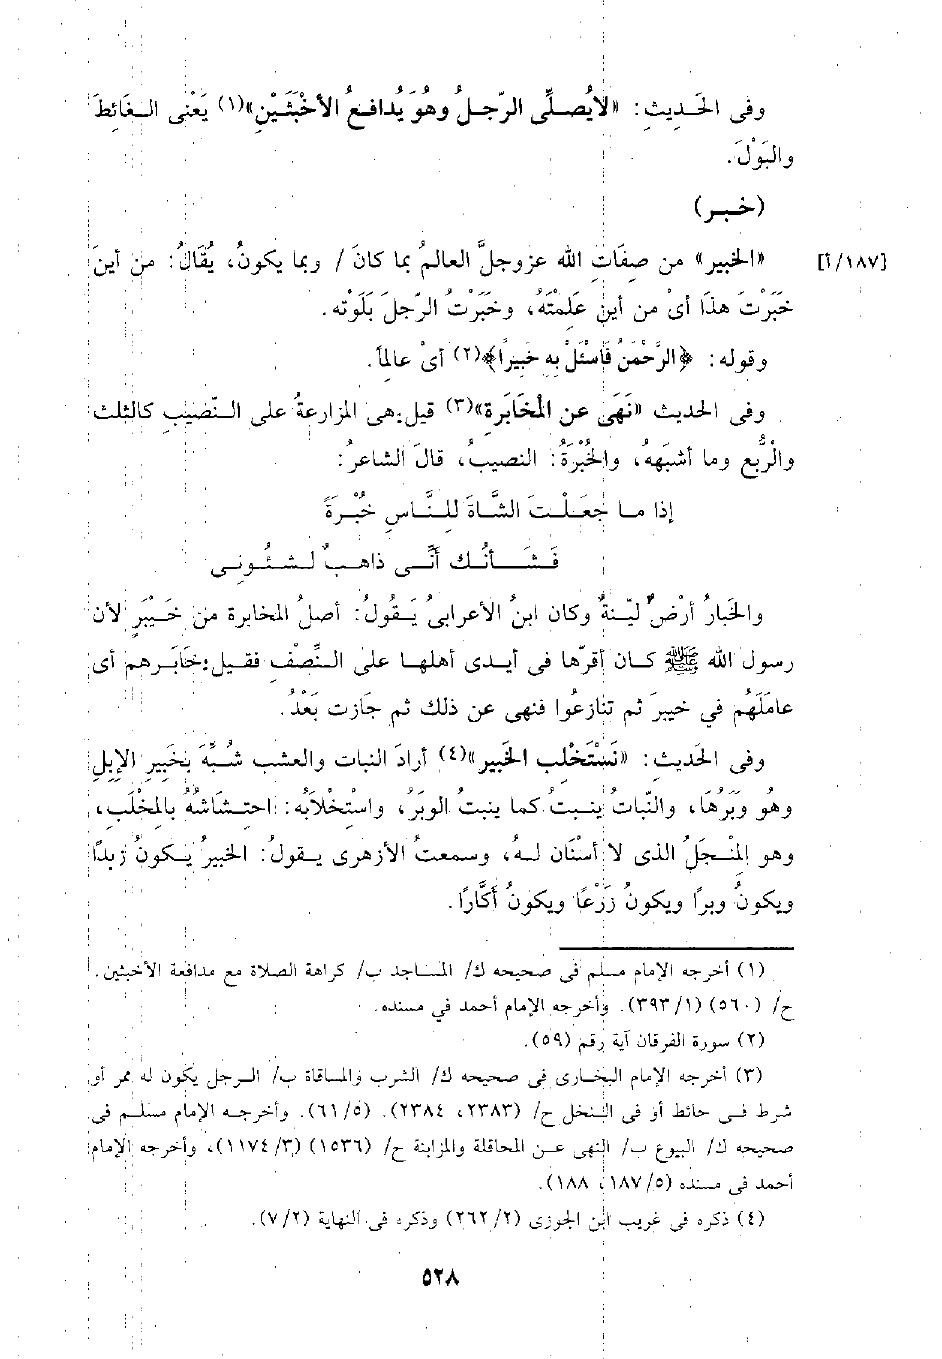 وفى الحَـديثِ: «لايُصـلِّى الرّجـلُ وهُو يُدافـعُ الأخْبَثَـيْنِ»(١) يَعْنى الـغَائطَ
والبَوْلَ.
(خـبـر)
«الخبير» من صِفَاتِ الله عزوجلَّ العالمُ بما كانَ / وبما يكونُ، يُقَالُ: من أينَ [١٨٧/أ]
خَبَرْتَ هذَا أىْ من أينَ عَلمتَهُ، وخَبَرْتُ الرّجلَ بَلَوْته.
وقوله: ﴿الرَّحْمَنُ فَاسْئَلْ بِهِ خبيرًا﴾(٢) أىْ عالماً.
وفى الحديث «نَهَى عن المُخَابَرة»(٣) قيل:هى المزارعةُ على النّصيبِ كالثلث
والرُّبع وما أشبَههُ، والخُبْرَةُ: النصيبُ، قالَ الشاعرُ:
إذا ما جَعَلْتَ الشَّاةَ للنَّاسِ خُبْرَةً
فَشَأنُك أنَّى ذاهبٌ لشئُونى
والخَبارُ أرْضٌ ليّنةٌ وكان ابنُ الأعرابىُ يَقُولُ: أصلُ المخابرة من خَيْبَرٍ لأن
رسول الله ﷺ كان أقرّها فى أيدى أهلها على النِّصْف فقيل:خَابَرهم أى
عاملَهُم في خيبرَ ثم تنازعُوا فنهى عن ذلك ثم جَازت بَعْدُ.
وفى الحَديث: «نَسْتَخْلب الخَبير»(٤) أرادَ النبات والعشب شُبِّهَ بخَبيرِ الإبلِ
وهُو وَبَرُهَا، والنّباتُ ينبتُ كما ينبتُ الوبَرُ، واستْخلَابَه: احتشَاشُهُ بالمخْلَب،
وهو المِنْجَلُ الذى لا أسْنَان لهُ، وسمعتُ الأزهرى يقولُ: الخبيرُ يكونُ زبدًا
ويكونُ وبرًا ويكونُ زَرْعًا ويكونُ أكَّارًا.
(١) أخرجه الإمام مسلم فى صحيحه ك/ المساجد ب/ كراهة الصلاة مع مدافعة الأخبثين.
ح/ (٥٦٠) (٣٩٣/١). وأخرجه الإمام أحمد في مسنده.
(٢) سورة الفرقان آية رقم (٥٩).
(٣) أخرجه الإمام البخارى فى صحيحه ك/ الشرب والمساقاة ب/ الرجل يكون له ممر أو
شرط فى حائط أو فى النخل ح/ (٢٣٨٣، ٢٣٨٤). (٦١/٥). وأخرجه الإمام مسلم فى
صحيحه ك/ البيوع ب/ النهى عن المحاقلة والمزابنة ح/ (١٥٣٦) (١١٧٤/٣)، وأخرجه الإمام
أحمد فى مسنده (١٨٧/٥، ١٨٨).
(٤) ذكره فى غريب ابن الجوزى (٢٦٢/٢) وذكره فى النهاية (٧/٢).
٥٢٨